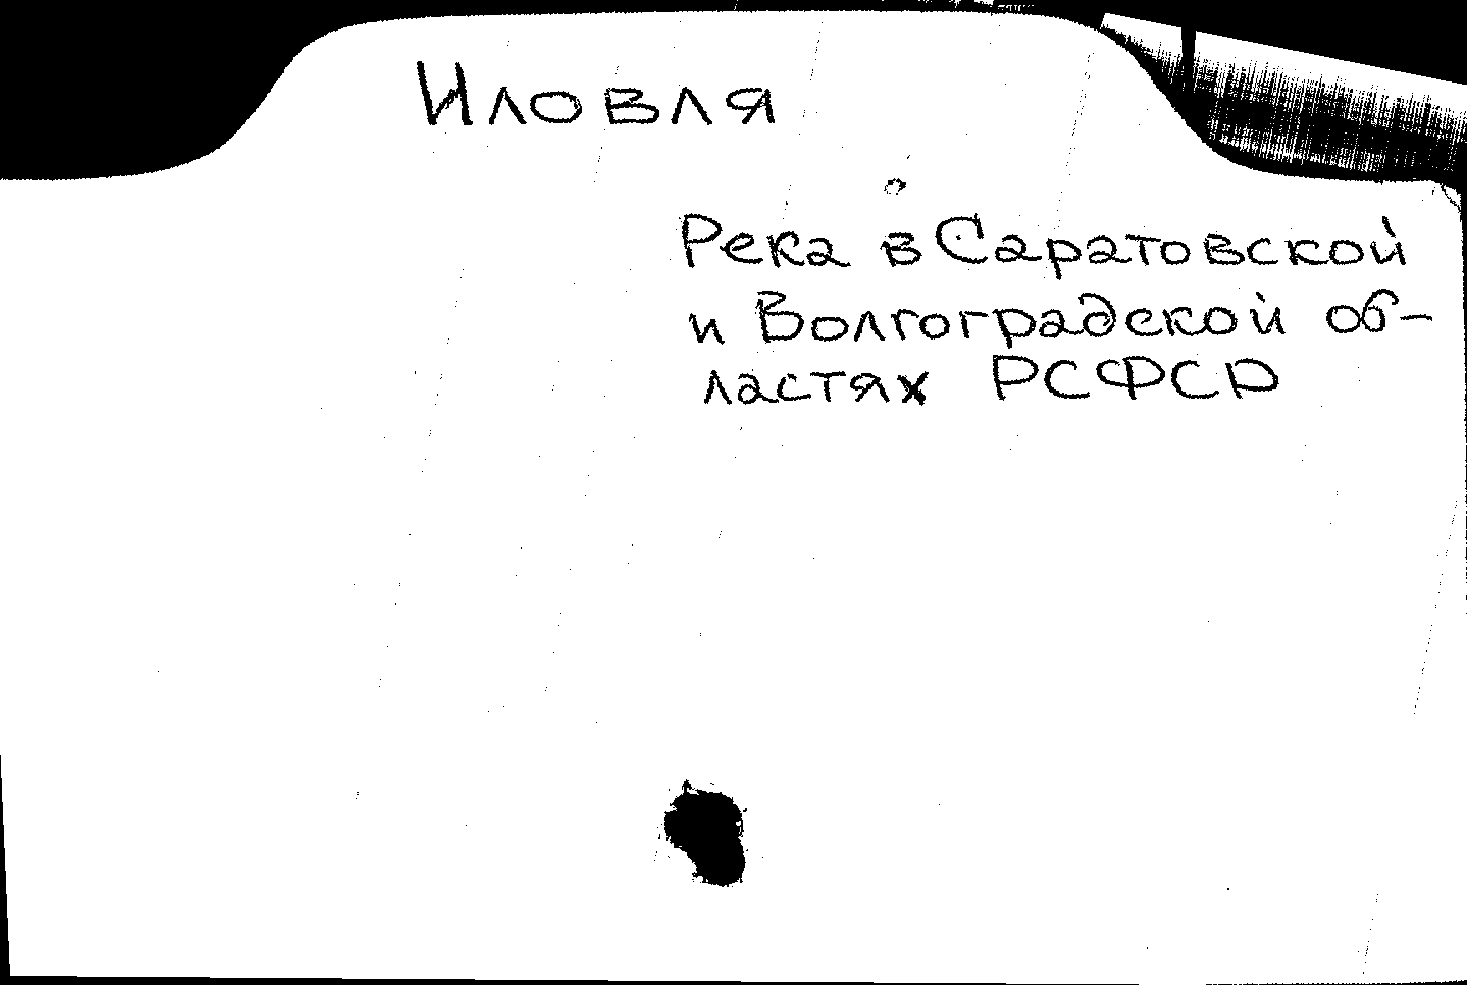 Иловля
Река в Саратовской
и Волгоградской об-
ластях РСФСР